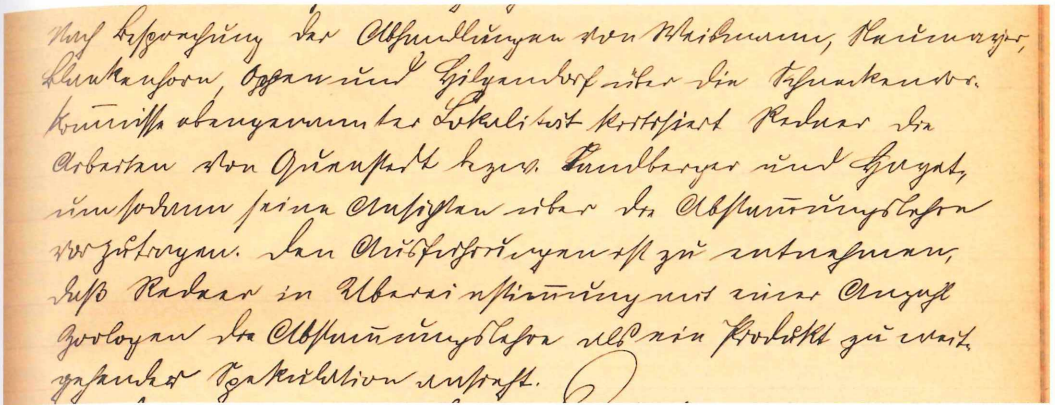 Nach Besprechung der Abhandlungen von Weismann, Neumayer,
Blankenhorn, Oppen und Hilgendorf über die Schneckenvor-
kom̅nisse obengenannter Lokalität kritisiert Redner die
Arbeiten von Quenstedt bezw. Sandberger und Hyatt,
um sodann seine Ansichten über die Abstam̅ungslehre
vorzutragen. Den Ausführungen ist zu entnehmen,
daß Redner in Übereinstim̅ung mit einer Anzahl
Zoologen die Abstam̅ungslehre als ein Produkt zu weit-
gehender Spekulation ansieht.